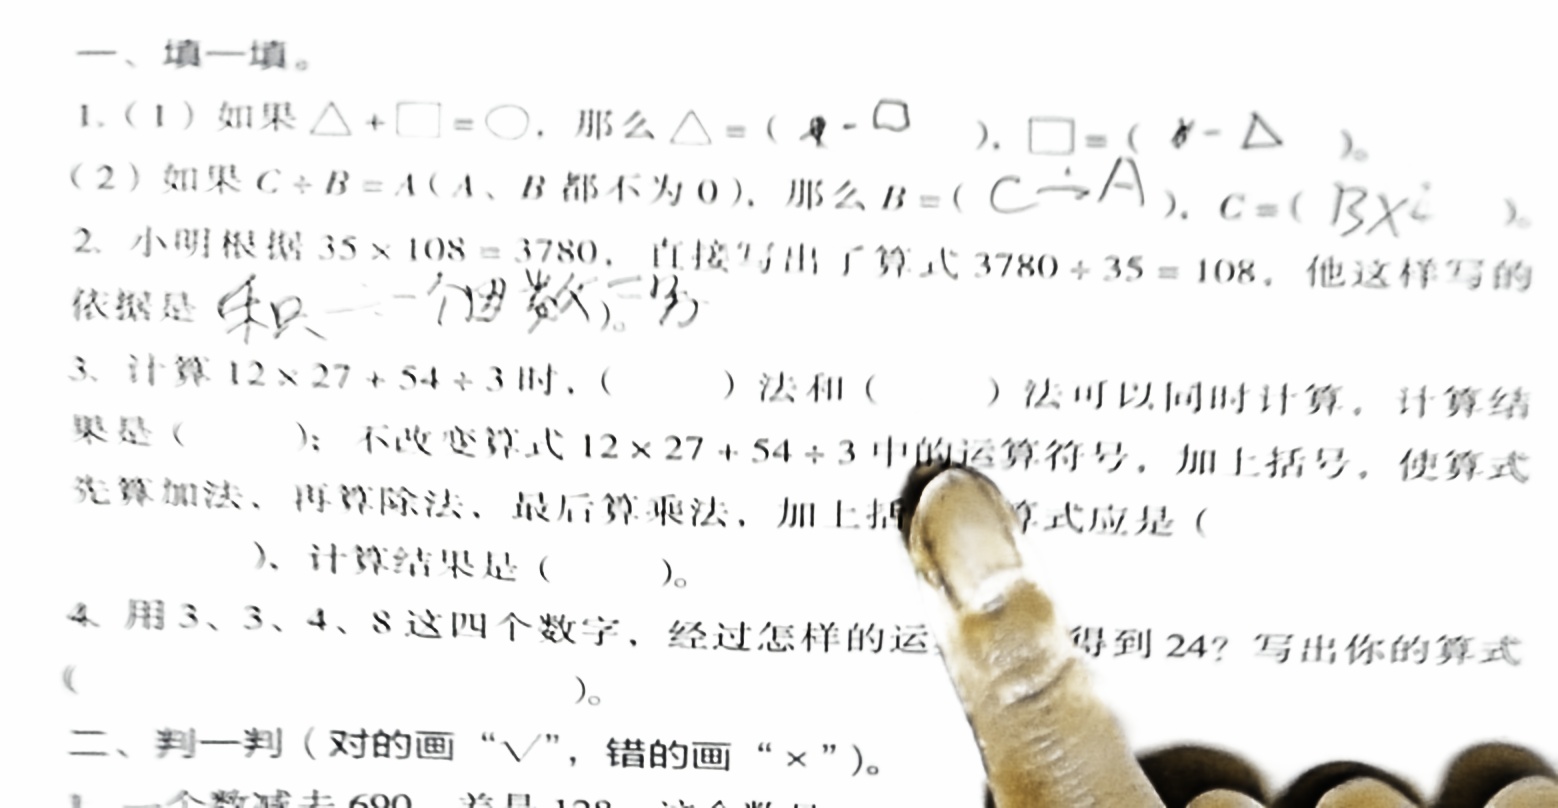 一、填一填。
1.(1)如果△+□=○,那么△=( -□ ),□=( -△ )。
(2)如果C÷B=A(A、B都不为0),那么B=( C÷A ),C=( B× )。
2. 小明根据35×108=3780,直接写出了算式3780÷35=108,他这样写的
依据是 积÷一个因数=另 )。
3. 计算12×27+54÷3时,( )法和( )法可以同时计算,计算结
果是( );不改变算式12×27+54÷3中的运算符号,加上括号,使算式
先算加法、再算除法、最后算乘法,加上括 算式应是(
),计算结果是( )。
4. 用3、3、4、8这四个数字,经过怎样的运 得到24?写出你的算式
( )。
二、判一判(对的画“√”,错的画“×”)。
1. 一个数减去690,差是128,这个数是